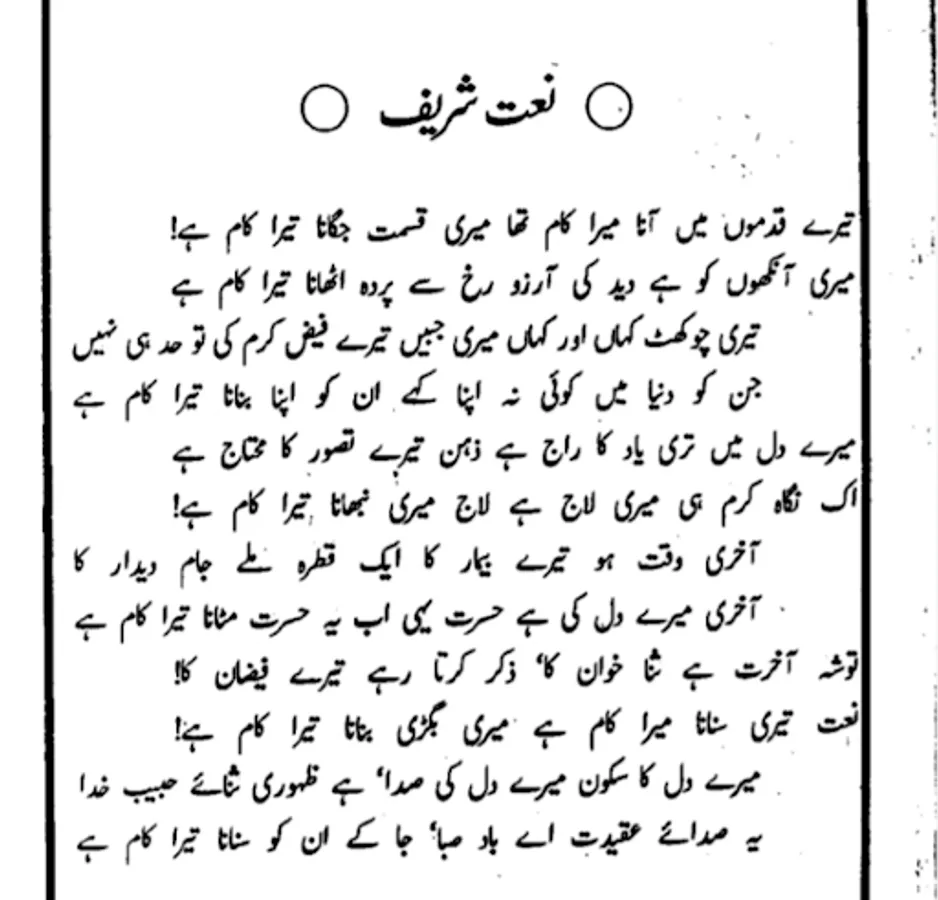 ○ نعت شریف ○
تیرے قدموں میں آنا میرا کام تھا میری قسمت جگانا تیرا کام ہے!
میری آنکھوں کو ہے دید کی آرزو رخ سے پردہ اٹھانا تیرا کام ہے
تیری چوکھٹ کہاں اور کہاں میری جبیں تیرے فیض کرم کی تو حد ہی نہیں
جن کو دنیا میں کوئی نہ اپنا کہے ان کو اپنا بنانا تیرا کام ہے
میرے دل میں تری یاد کا راج ہے ذہن تیرے تصور کا محتاج ہے
اک نگاہ کرم ہی میری لاج ہے لاج میری نبھانا تیرا کام ہے!
آخری وقت ہو تیرے بیمار کا ایک قطرہ ملے جام دیدار کا
آخری میرے دل کی ہے حسرت یہی اب یہ حسرت مٹانا تیرا کام ہے
توشہ آخرت ہے ثنا خوان کا، ذکر کرتا رہے تیرے فیضان کا!
نعت تیری سنانا میرا کام ہے میری بگڑی بنانا تیرا کام ہے!
میرے دل کا سکون میرے دل کی صدا، ہے ظہوری ثنائے حبیب خدا
یہ صدائے عقیدت اے باد صبا، جا کے ان کو سنانا تیرا کام ہے